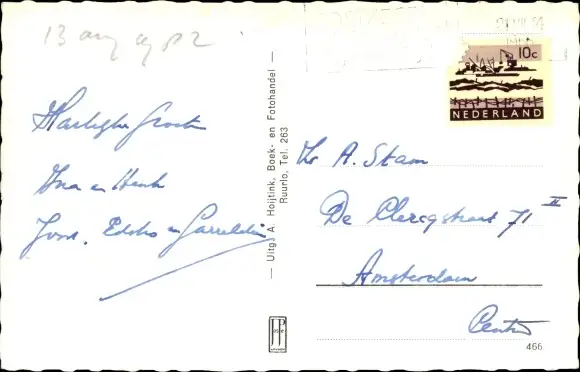 13 aug
10c
NEDERLAND
Hartelijke Groeten
Ina en Henk
Joos, Eddo en Garrelden
— Uitg. A. Hoijtink, Boek- en Fotohandel —
Ruurlo, Tel. 263
A. Stam
De Clercqstraat 71 II
Amsterdam
Centr
JP
466